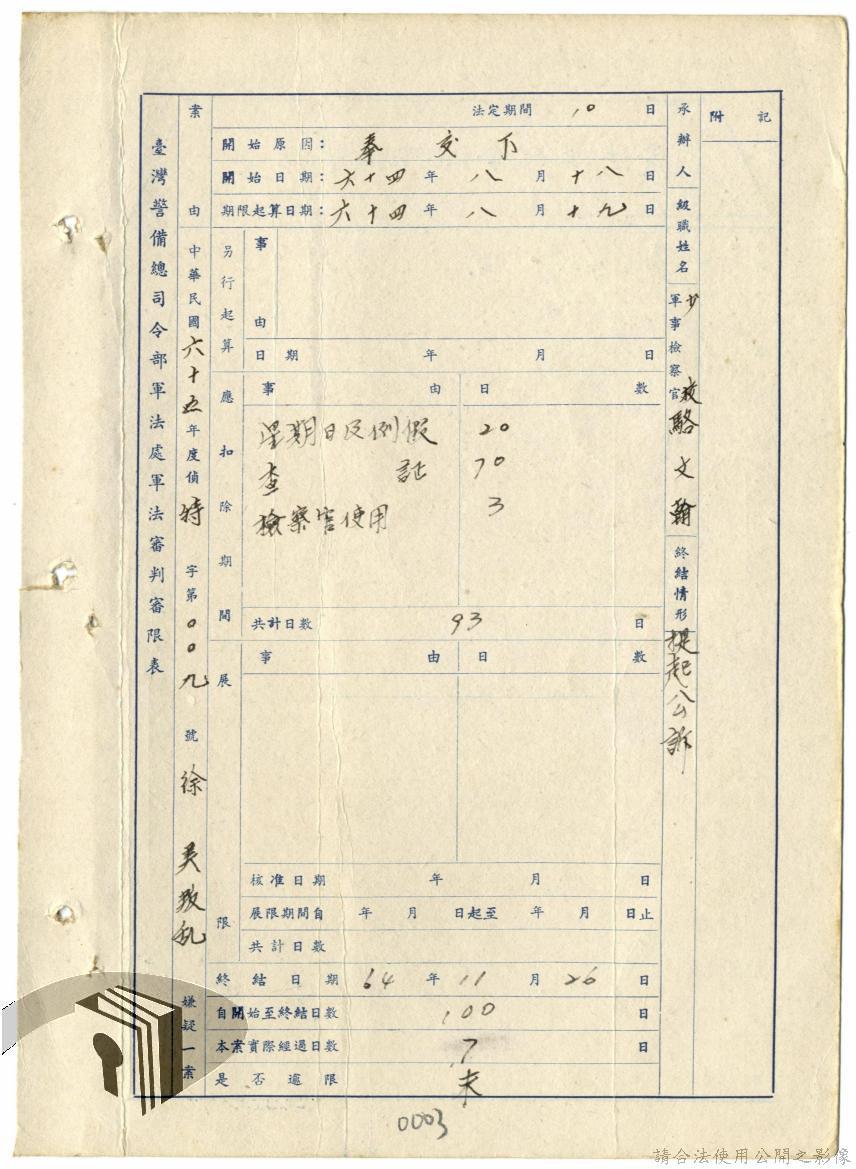 臺灣警備總司令部軍法處軍法審判審限表
案由 中華民國六十五年度偵特字第00九號徐 叛乱嫌疑一案
法定期間 10 日
開始原因：奉 交 下
開始日期：六十四年 八 月 十八 日
期限起算日期：六十四年 八 月 十九 日
另行起算
事由
日期 年 月 日
應扣除期間
事由 日數
星期日及例假 20
查 証 70
檢察官使用 3
共計日數 93 日
展限
事由 日數
核准日期 年 月 日
展限期間自 年 月 日起至 年 月 日止
共計日數
終結日期 64 年 11 月 26 日
自開始至終結日數 100 日
本案實際經過日數 7 日
是否逾限 未
承辦人級職姓名 軍事檢察官 少校 駱文翰
終結情形 提起公訴
附記
0003
請合法使用公開之影像